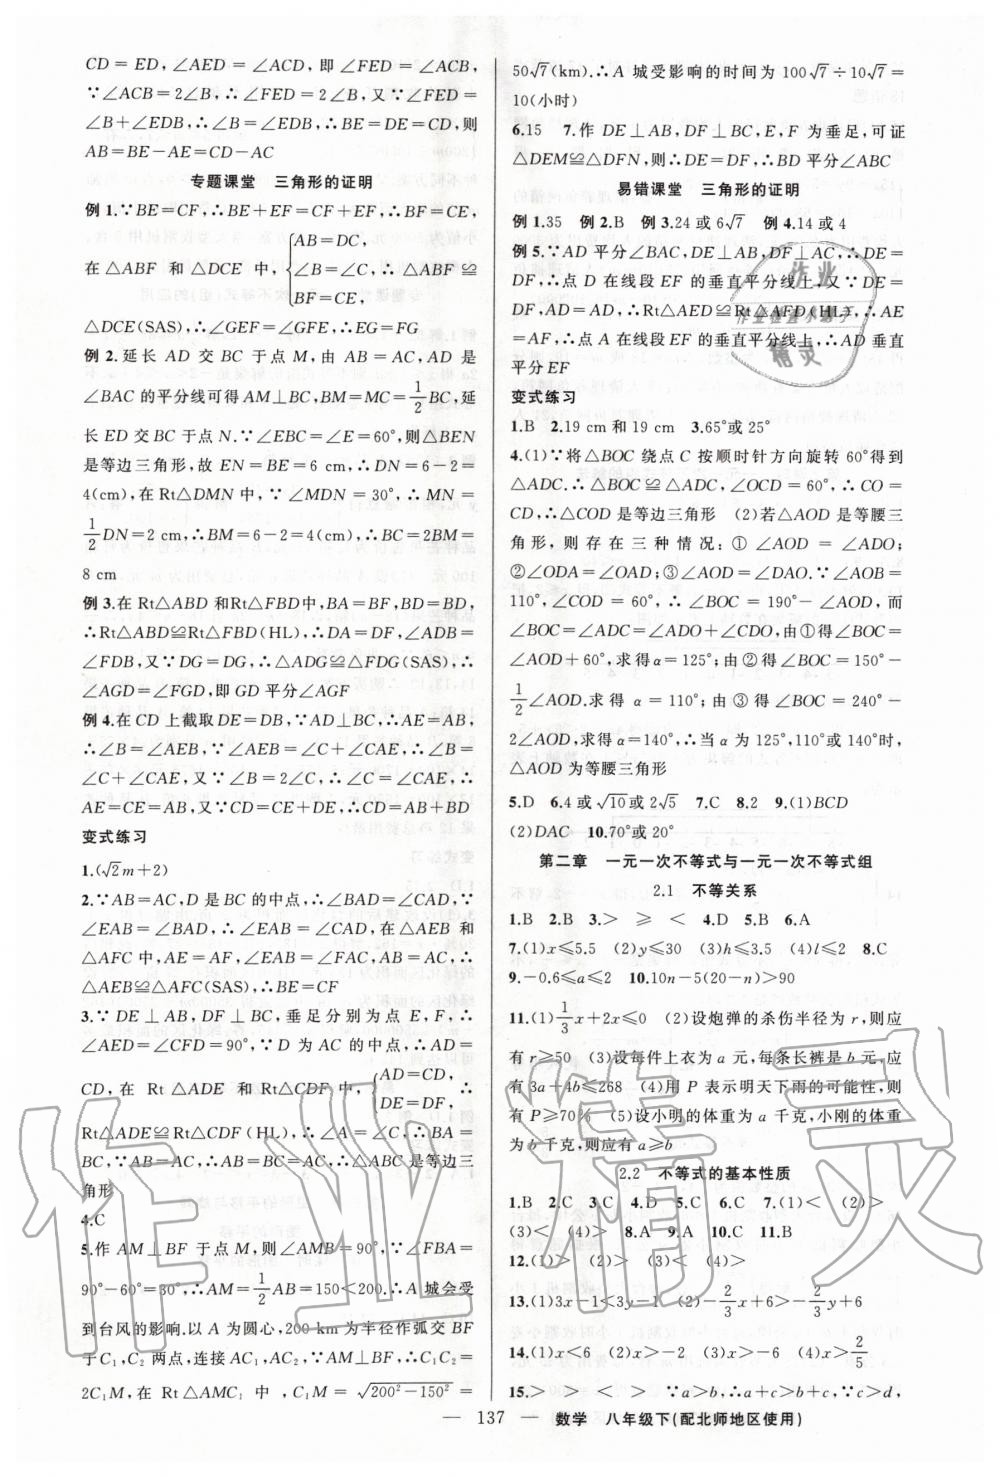 CD=ED,∠AED=∠ACD,即∠FED=∠ACB,
∵∠ACB=2∠B,∴∠FED=2∠B,又∵∠FED=
∠B+∠EDB,∴∠B=∠EDB,∴BE=DE=CD,则
AB=BE-AE=CD-AC
专题课堂 三角形的证明
例 1.∵BE=CF,∴BE+EF=CF+EF,∴BF=CE,
在△ABF 和△DCE 中,{AB=DC, ∠B=∠C, BF=CE, ∴△ABF≌
△DCE(SAS),∴∠GEF=∠GFE,∴EG=FG
例 2.延长 AD 交 BC 于点 M,由 AB=AC,AD 是
∠BAC 的平分线可得 AM⊥BC,BM=MC=1/2BC,延
长 ED 交 BC 于点 N.∵∠EBC=∠E=60°,则△BEN
是等边三角形,故 EN=BE=6 cm,∴DN=6-2=
4(cm),在 Rt△DMN 中,∵∠MDN=30°,∴MN=
1/2DN=2cm,∴BM=6-2=4(cm),∴BC=2BM=
8 cm
例 3.在Rt△ABD 和Rt△FBD中,BA=BF,BD=BD,
∴Rt△ABD≌Rt△FBD(HL),∴DA=DF,∠ADB=
∠FDB,又∵DG=DG,∴△ADG≌△FDG(SAS),∴
∠AGD=∠FGD,即 GD 平分∠AGF
例 4.在 CD 上截取 DE=DB,∵AD⊥BC,∴AE=AB,
∴∠B=∠AEB,∵∠AEB=∠C+∠CAE,∴∠B=
∠C+∠CAE,又∵∠B=2∠C,∴∠C=∠CAE,∴
AE=CE=AB,又∵CD=CE+DE,∴CD=AB+BD
变式练习
1.(√2m+2)
2.∵AB=AC,AD 是 BC 的中点,∴∠BAD=∠CAD,∵
∠EAB=∠BAD,∴∠EAB=∠CAD,在△AEB 和
△AFC 中,AE=AF,∠EAB=∠FAC,AB=AC,∴
△AEB≌△AFC(SAS),∴BE=CF
3.∵DE⊥AB,DF⊥BC,垂足分别为点 E,F,∴
∠AED=∠CFD=90°,∵D 为 AC 的中点,∴AD=
CD,在 Rt△ADE 和 Rt△CDF 中,{AD=CD, DE=DF, ∴
Rt△ADE≌Rt△CDF(HL),∴∠A=∠C,∴BA=
BC,∵AB=AC,∴AB=BC=AC,∴△ABC 是等边三
角形
4.C
5.作 AM⊥BF 于点 M,则∠AMB=90°,∵∠FBA=
90°-60°=30°,∴AM=1/2AB=150<200.∴A 城会受
到台风的影响.以 A 为圆心,200 km为半径作弧交 BF
于 C₁,C₂ 两点,连接 AC₁,AC₂,∵AM⊥BF,∴C₁C₂=
2C₁M,在 Rt△AMC₁ 中,C₁M=√(200²-150²)=
50√7(km).∴A 城受影响的时间为 100√7÷10√7=
10(小时)
6.15 7.作 DE⊥AB,DF⊥BC,E,F 为垂足,可证
△DEM≌△DFN,则∴DE=DF,∴BD 平分∠ABC
易错课堂 三角形的证明
例 1.35 例 2.B 例 3.24 或 6√7 例 4.14 或 4
例 5.∵AD 平分∠BAC,DE⊥AB,DF⊥AC,∴DE=
DF,∴点 D 在线段 EF 的垂直平分线上,又∵DE=
DF,AD=AD,∴Rt△AED≌Rt△AFD(HL),∴AE
=AF,∴点 A 在线段 EF 的垂直平分线上,∴AD 垂直
平分 EF
变式练习
1.B 2.19 cm 和 19 cm 3.65°或 25°
4.(1)∵将△BOC 绕点 C 按顺时针方向旋转 60°得到
△ADC.∴△BOC≌△ADC,∠OCD=60°,∴CO=
CD,∴△COD 是等边三角形 (2)若△AOD 是等腰三
角形,则存在三种情况:①∠AOD=∠ADO;
②∠ODA=∠OAD;③∠AOD=∠DAO.∵∠AOB=
110°,∠COD=60°,∴∠BOC=190°-∠AOD,而
∠BOC=∠ADC=∠ADO+∠CDO,由①得∠BOC=
∠AOD+60°,求得α=125°;由②得∠BOC=150°-
1/2∠AOD.求得α=110°;由③得∠BOC=240°-
2∠AOD,求得α=140°,∴当α为 125°,110°或 140°时,
△AOD 为等腰三角形
5.D 6.4 或√10或 2√5 7.C 8.2 9.(1)BCD
(2)DAC 10.70°或 20°
第二章 一元一次不等式与一元一次不等式组
2.1 不等关系
1.B 2.B 3.> ≥ < 4.D 5.B 6.A
7.(1)x≤5.5 (2)y≤30 (3)h≤3.5 (4)l≤2 8.C
9.-0.6≤a≤2 10.10n-5(20-n)>90
11.(1)1/3x+2x≤0 (2)设炮弹的杀伤半径为 r,则应
有 r≥50 (3)设每件上衣为 a 元,每条长裤是 b 元,应
有 3a+4b≤268 (4)用 P 表示明天下雨的可能性,则
有 P≥70% (5)设小明的体重为 a 千克,小刚的体重
为 b 千克,则应有 a≥b
2.2 不等式的基本性质
1.B 2.C 3.C 4.D 5.C 6.C 7.(1)< (2)>
(3)> (4)> 8.A 9.A 10.C 11.B
12.(1)> (2)< (3)< (4)>
13.(1)3x-1<3y-1 (2)-2/3x+6>-2/3y+6
14.(1)x<6 (2)x<-2 (3)x>-6 (4)x>-2/5
15.> > < < ∵a>b,∴a+c>b+c,∵c>d,
— 137 — 数学 八年级下(配北师地区使用)
作业
作业检查小助手
精灵
作业精灵